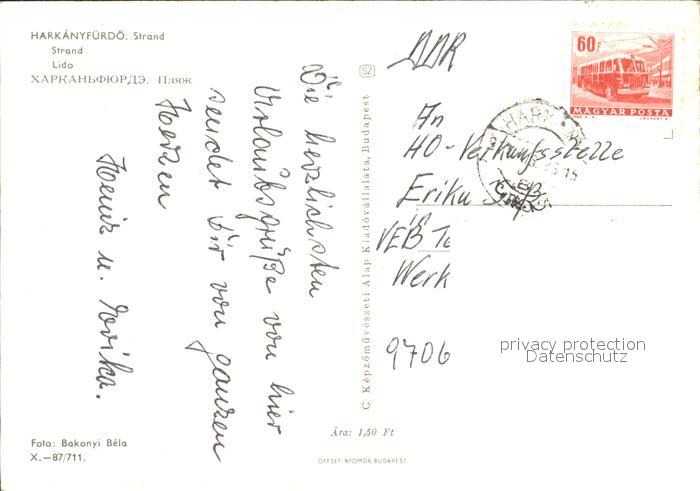 HARKÁNYFÜRDŐ, Strand
Strand
Lido
ХАРКАНЬФЮРДЭ. Пляж
Die herzlichsten
Urlaubsgrüße von hier
sendet Dir von ganzen
Herzen
Heinz u. Erika.
Foto: Bakonyi Béla
X.—87/711.
SZ
C Képzőművészeti Alap Kiadóvállalata, Budapest
Ára: 1,50 Ft
OFFSET-NYOMDA, BUDAPEST
DDR
60f
MAGYAR POSTA
HARK
An
HO-Verkaufsstelle
Erika
in
VEB Te
Werk
9706
privacy protection
Datenschutz